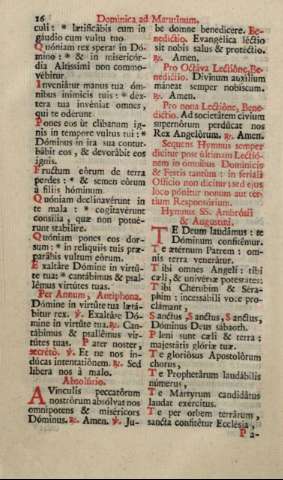 16 Dominica ad Matutinum.
culi: * lætificábis eum in
gáudio cum vultu tuo.
Quóniam rex sperat in Dó-
mino: * & in misericór-
dia Altíssimi non commo-
vébitur.
Inveniátur manus tua óm-
nibus inimícis tuis: * dex-
tera tua invéniat omnes,
qui te odérunt.
Pones eos ut clíbanum ig-
nis in témpore vultus tui: *
Dóminus in ira sua contur-
bábit eos, & devorábit eos
ignis.
Fructum eôrum de terra
perdes: * & semen eôrum
à fíliis hóminum.
Quóniam declinavérunt in
te mala: * cogitavérunt
consília, quæ non potué-
runt stabilíre.
Quóniam pones eos dor-
sum: * in relíquiis tuis præ-
parábis vultum eôrum.
Exaltáre Dómine in virtú-
te tua: * cantábimus & psal-
lémus virtútes tuas.
Per Annum, Antiphona.
Dómine in virtúte tua lætá-
bitur rex. ℣. Exaltáre Dó-
mine in virtúte tua. ℟. Can-
tábimus & psallémus vir-
tútes tuas. Pater noster,
secretò. ℣. Et ne nos in-
dúcas intentatiônem. ℟. Sed
líbera nos à malo.
Absolutio.
A Vínculis peccatôrum
nostrôrum absólvat nos
omnípotens & miséricors
Dóminus. ℟. Amen. ℣. Ju-
be domne benedícere. Be-
nedictio. Evangélica léctio
sit nobis salus & protéctio.
℟. Amen.
Pro Octáva Lectiône, Be-
nedictio. Divínum auxílium
máneat semper nobíscum.
℟. Amen.
Pro nona Lectiône, Bene-
dictio. Ad societátem cívium
supernôrum perdúcat nos
Rex Angelôrum. ℟. Amen.
Sequens Hymnus semper
dicitur post ultimam Lectió-
nem in omnibus Dominicis
& Festis tantùm: in feriali
Officio non dicitur sed ejus
loco pónitur nonum aut ter-
tium Responsórium.
Hymnus SS. Ambrósii
& Augustíni.
TE Deum laudámus: te
Dóminum confitêmur.
Te ætérnum Patrem: om-
nis terra venerátur.
Tibi omnes Angeli: tibi
cæli, & univérsæ potestátes:
Tibi Chérubim & Séra-
phim: incessábili voce pro-
clámant,
Sanctus, Sanctus, Sanctus,
Dóminus Deus sábaoth.
Pleni sunt cæli & terra:
majestátis glóriæ tuæ.
Te gloriósus Apostolôrum
chorus,
Te Prophetárum laudábilis
númerus,
Te Mártyrum candidátus
laudat exércitus.
Te per orbem terrárum,
sancta confitétur Ecclésia,
Pa-